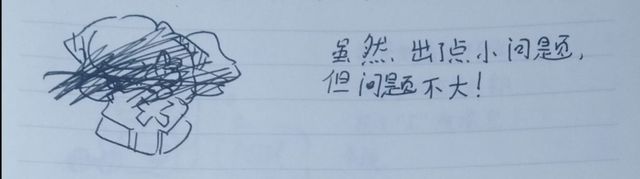 虽然出了点小问题，
但问题不大！